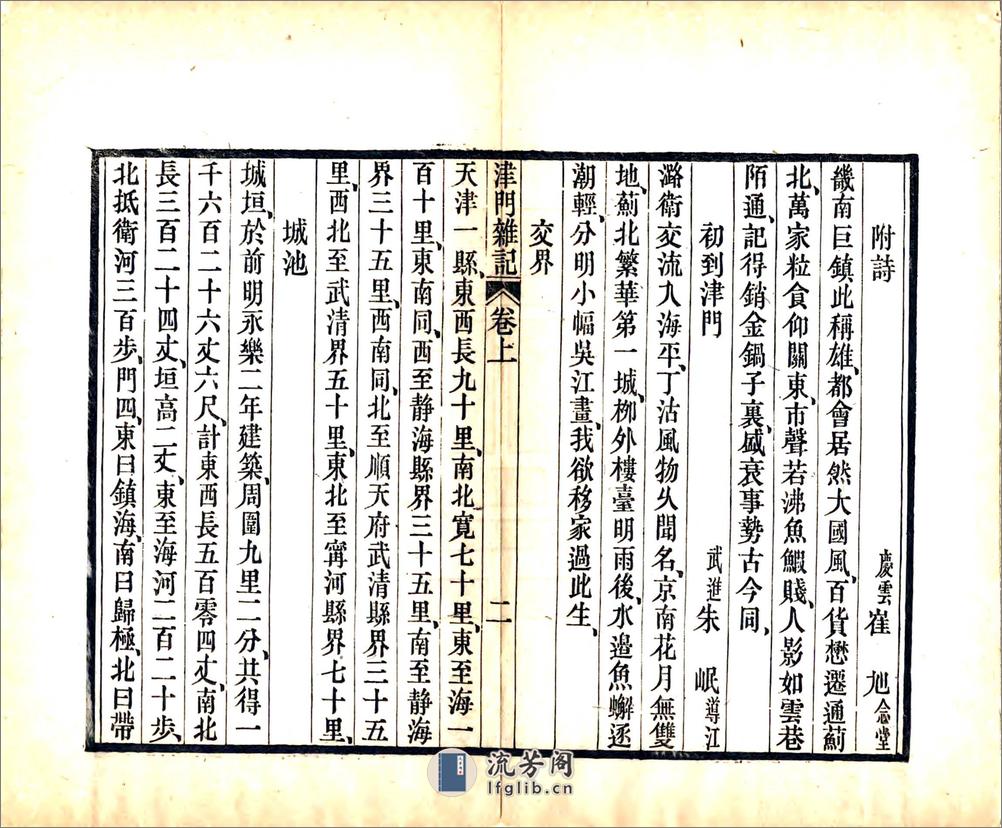 附詩　慶雲崔　旭念堂
畿南巨鎮此稱雄、都會居然大國風、百貨懋遷通薊
北、萬家粒食仰關東、市聲若沸魚鰕賤、人影如雲巷
陌通、記得銷金鍋子裏、盛衰事勢古今同、
初到津門　武進朱　岷導江
潞衛交流入海平、丁沽風物久聞名、京南花月無雙
地、薊北繁華第一城、栁外樓臺明雨後、水邉魚蠏逐
潮輕、分明小幅吳江畫、我欲移家過此生、
交界
津門雜記　卷上　二
天津一縣、東西長九十里、南北寬七十里、東至海一
百十里、東南同、西至静海縣界三十五里、南至静海
界三十五里、西南同、北至順天府武清縣界三十五
里、西北至武清界五十里、東北至寗河縣界七十里、
城池
城垣、於前明永樂二年建築、周圍九里二分、共得一
千六百二十六丈六尺、計東西長五百零四丈、南北
長三百二十四丈、垣高二丈、東至海河二百二十步、
北抵衛河三百步、門四、東曰鎮海、南曰歸極、北曰帶
流芳阁
lfglib.cn